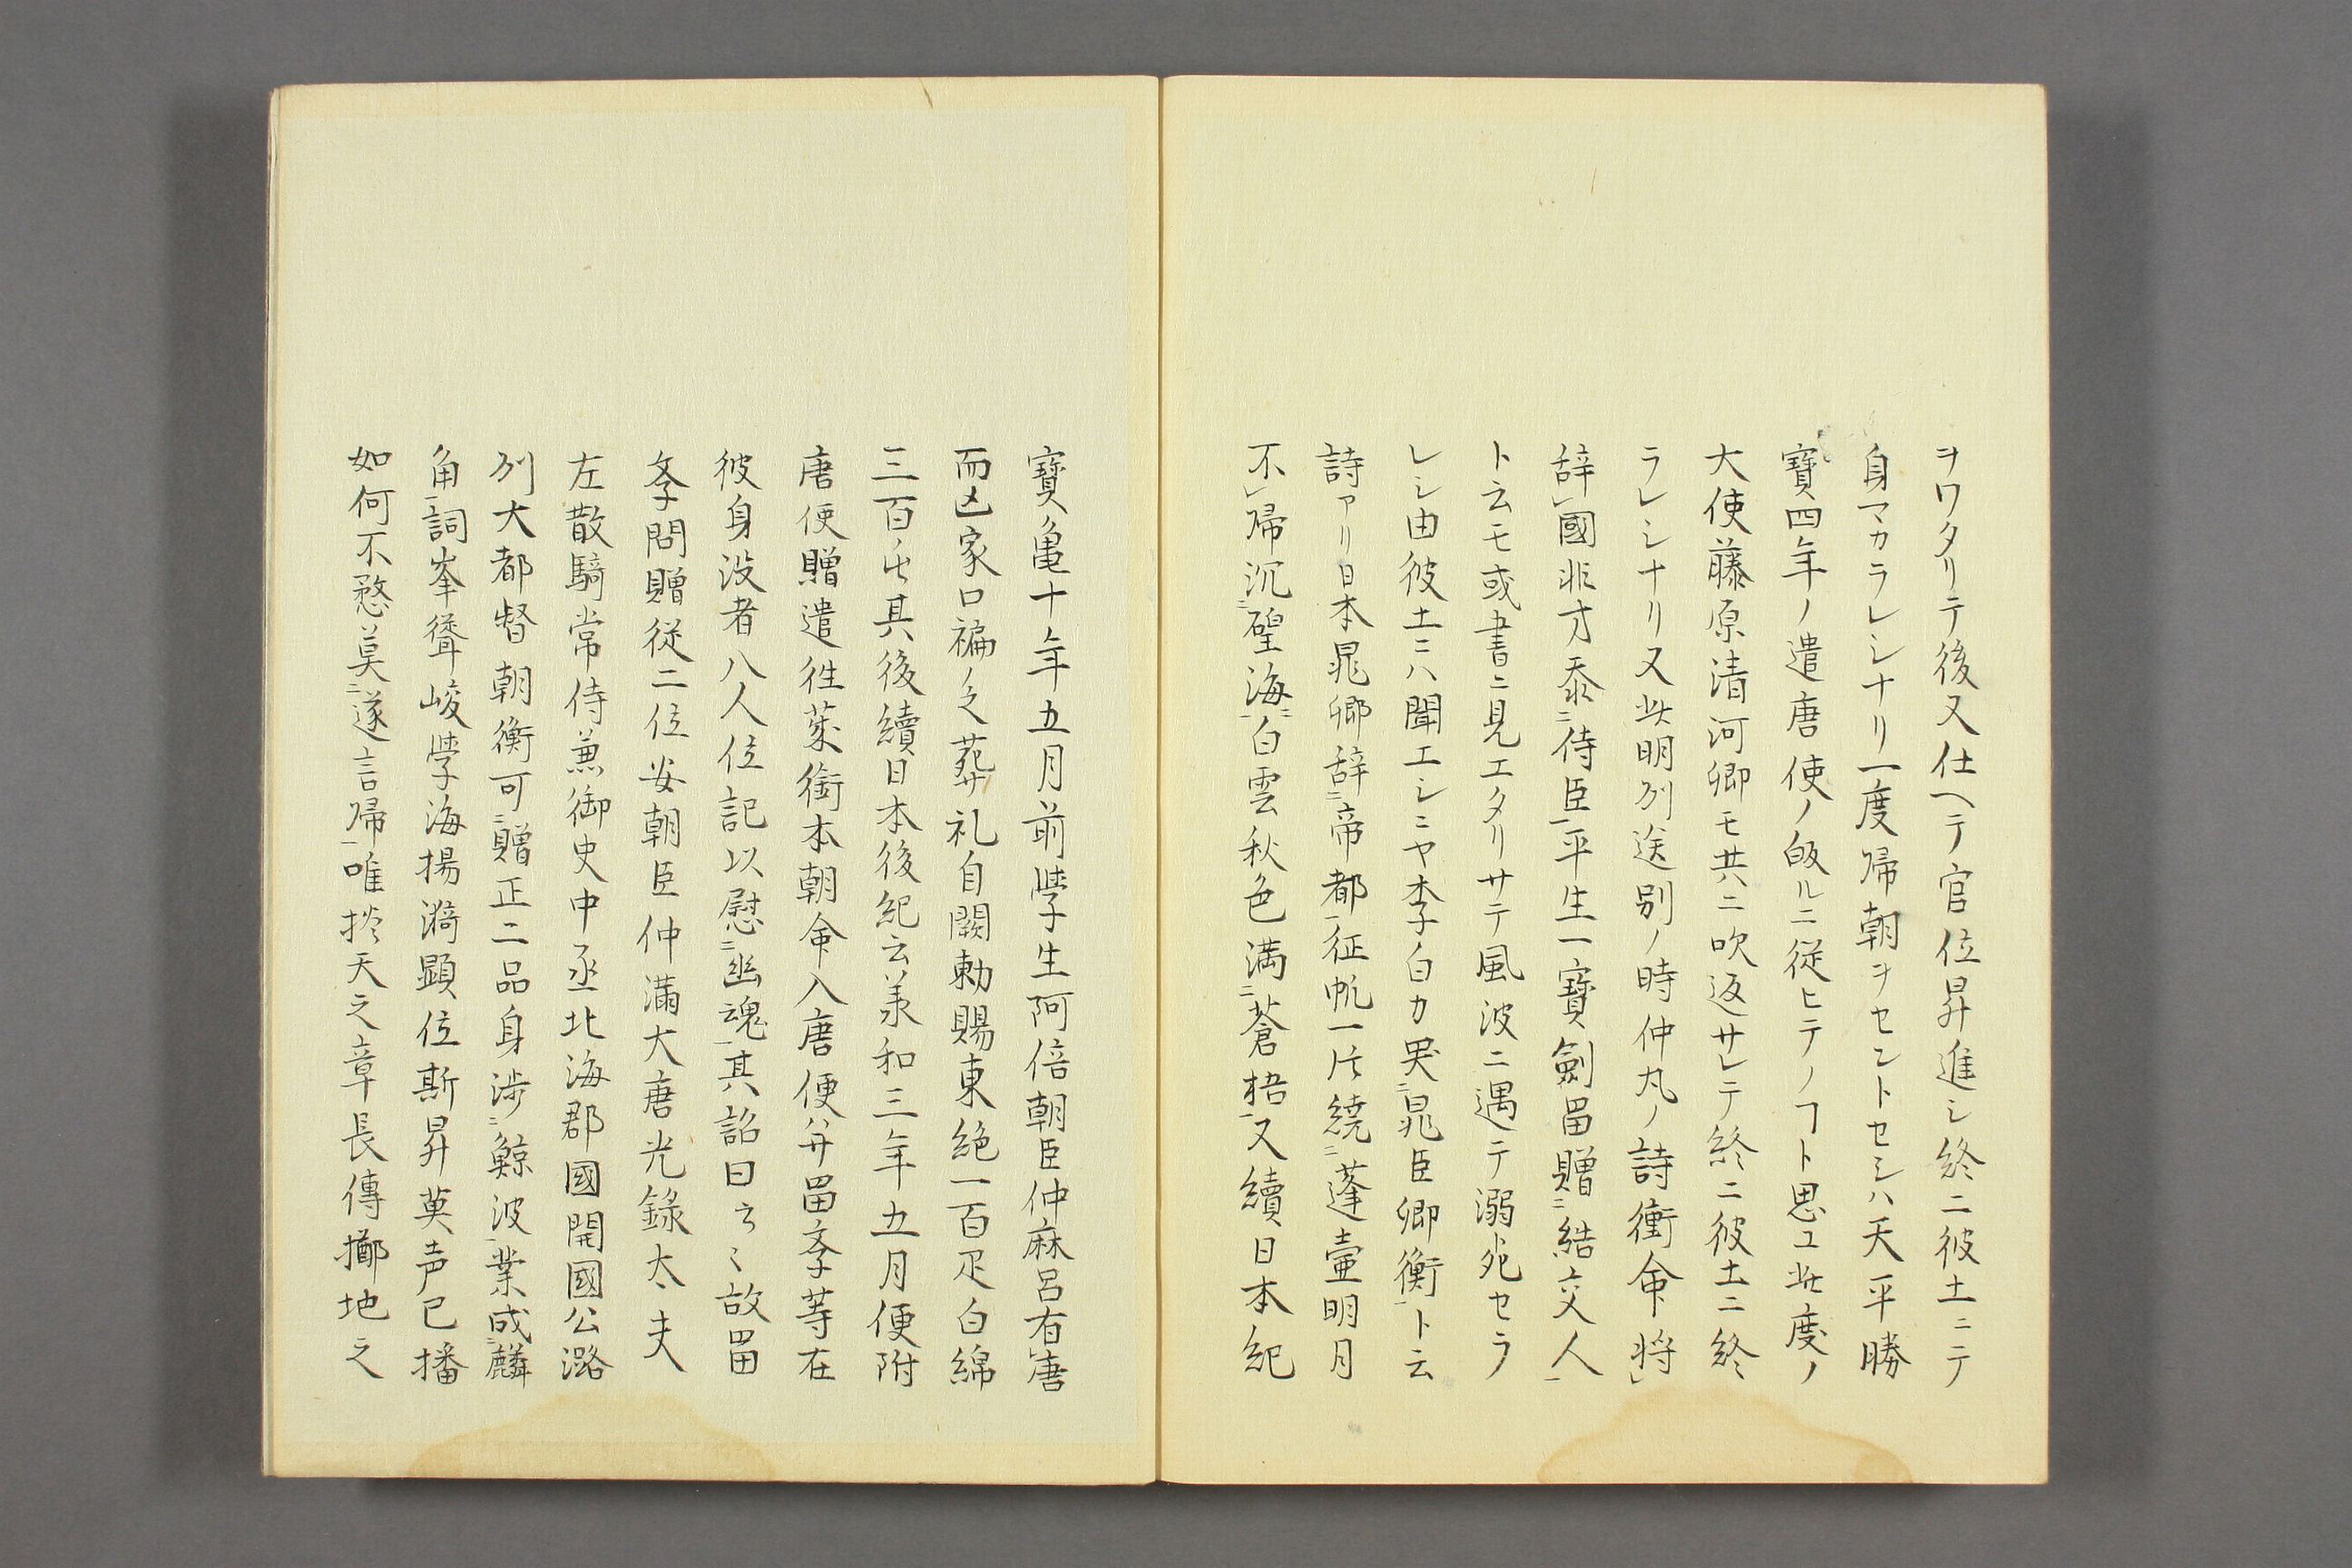 ヲワタリテ後又仕ヘテ官位昇進シ終ニ彼土ニテ
身マカラレシナリ一度帰朝ヲセントセシハ天平勝
寳四年ノ遣唐使ノ皈ルニ従ヒテノヿト思ユ此度ノ
大使藤原清河卿モ共ニ吹返サレテ終ニ彼土ニ終
ラレシナリ又此明列送別ノ時仲丸ノ詩衝命将㆑
辞㆑國非才忝㆓侍臣㆒平生一寳劍畄贈㆓結交人㆒
ト云モ或書ニ見エタリサテ風波ニ遇テ溺死セラ
レシ由彼土ニハ聞エシニヤ李白カ哭㆓晁臣卿衡㆒ト云
詩アリ日本晁卿辞㆓帝都㆒征帆一片繞㆓蓬壷明月
不㆑帰沉㆓碧海㆒白雲秋色満㆓蒼梧㆒又續日本紀
寳亀十年五月前學生阿倍朝臣仲麻呂有唐
而亡家口褊乏葬礼有闕勅賜東絁一百疋白綿
三百屯其後續日本後紀云美和三年五月便附
唐使贈遣徃荿衘本朝命入唐使并畄孝等在
彼身没者八人位記以慰㆓幽魂㆒其詔曰云〻故畄
孝問贈従二位安朝臣仲滿大唐光錄太夫
左散騎常侍兼御史中丞北海郡國開國公潞
列大都督朝衡可㆓贈正二品身渉㆓鯨波㆒業成㆓麟
角㆒詞峯聳峻學海揚漪顕位斯昇英声已播
如何不憗莫㆓遂言帰㆒唯挍天之章長傳擲地之